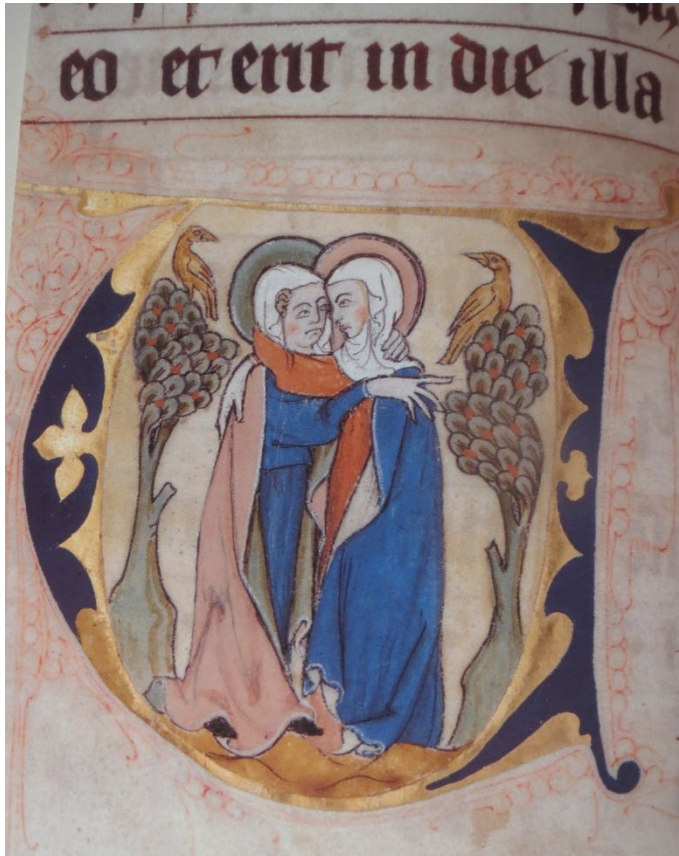 eo et erit in die illa